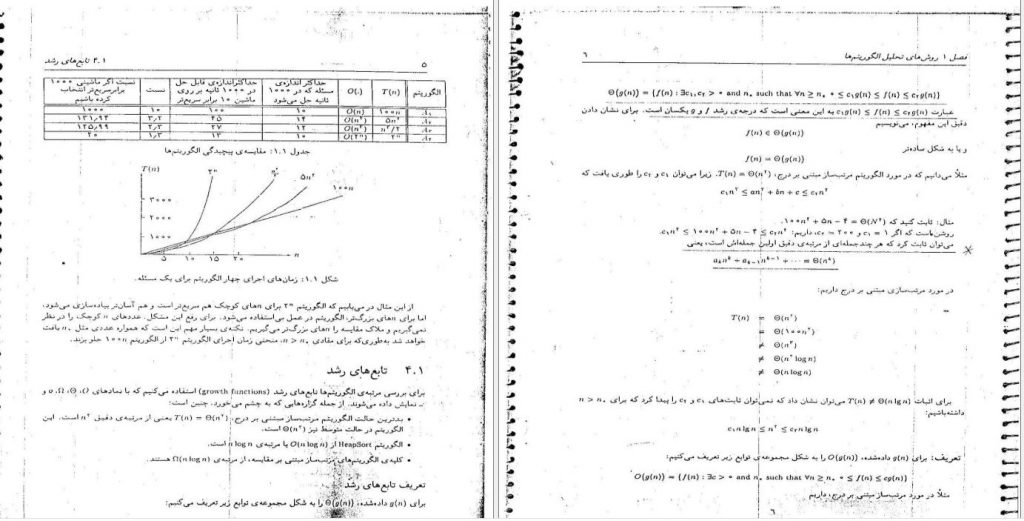 ۴.۱ تابع‌های رشد
۵
الگوریتم T(n) O(.) حداکثر اندازه‌ی مسئله که در ۱۰۰۰ ثانیه حل می‌شود حداکثراندازه‌ی قابل حل در ۱۰۰۰ ثانیه بر روی ماشین ۱۰ برابر سریع‌تر نسبت نسبت اگر ماشینی ۱۰۰۰ برابرسریع‌تر انتخاب کرده باشیم
A₁ ۱۰۰n O(n) ۱۰ ۱۰۰ ۱۰ ۱۰۰۰
A₂ ۵n² O(n²) ۱۴ ۴۵ ۳٫۲ ۱۳۱٫۹۴
A₃ n³/۲ O(n³) ۱۲ ۲۷ ۲٫۳ ۱۲۵٫۹۹
A₄ ۲ⁿ O(۲ⁿ) ۱۰ ۱۳ ۱٫۳ ۲۰
جدول ۱.۱: مقایسه‌ی پیچیدگی الگوریتم‌ها
T(n)
۲ⁿ
۵n²
۱۰۰n
۳۰۰۰
۲۰۰۰
۱۰۰۰
۵ ۱۰ ۱۵ ۲۰ n
شکل ۱.۱: زمان‌های اجرای چهار الگوریتم برای یک مسئله.
از این مثال در می‌یابیم که الگوریتم ۲ⁿ برای nهای کوچک هم سریع‌تر است و هم آسان‌تر پیاده‌سازی می‌شود.
اما برای nهای بزرگ‌تر، الگوریتم در عمل بی‌استفاده می‌شود. برای رفع این مشکل، عددهای n کوچک را در نظر
نمی‌گیریم و ملاک مقایسه را nهای بزرگ‌تر می‌گیریم. نکته‌ی بسیار مهم این است که همواره عددی مثل n₀ یافت
خواهد شد به‌طوری‌که برای مقادی n > n₀، منحنی زمان اجرای الگوریتم ۲ⁿ از الگوریتم ۱۰۰n جلو بزند.
۴.۱ تابع‌های رشد
برای بررسی مرتبه‌ی الگوریتم‌ها تابع‌های رشد (growth functions) استفاده می‌کنیم که با نمادهای O، Θ، Ω، o و
ω نمایش داده می‌شوند. از جمله گزاره‌هایی که به چشم می‌خورد، چنین است:
• بدترین حالت الگوریتم مرتب‌ساز مبتنی بر درج، T(n) = Θ(n²) یعنی از مرتبه‌ی دقیق n² است. این
الگوریتم در حالت متوسط نیز Θ(n²) است.
• الگوریتم HeapSort از O(n log n) یا مرتبه‌ی n log n است.
• کلیه‌ی الگوریتم‌های مرتب‌ساز مبتنی بر مقایسه، از مرتبه‌ی Ω(n log n) هستند.
تعریف تابع‌های رشد
برای g(n) داده‌شده، Θ(g(n)) را به شکل مجموعه‌ی توابع زیر تعریف می‌کنیم:
فصل ۱ روش‌های تحلیل الگوریتم‌ها
۶
Θ(g(n)) = {f(n) : ∃c₁, c₂ > ۰ and n₀ such that ∀n ≥ n₀ ۰ ≤ c₁g(n) ≤ f(n) ≤ c₂g(n)}
عبارت c₁g(n) ≤ f(n) ≤ c₂g(n) به این معنی است که درجه‌ی رشد f و g یکسان است. برای نشان دادن
دقیق این مفهوم، می‌نویسیم
f(n) ∈ Θ(g(n))
و یا به شکل ساده‌تر
f(n) = Θ(g(n))
مثلاً می‌دانیم که در مورد الگوریتم مرتب‌ساز مبتنی بر درج، T(n) = Θ(n²). زیرا می‌توان c₁ و c₂ را طوری یافت که
c₁n² ≤ an² + bn + c ≤ c₂n²
مثال: ثابت کنید که ۱۰۰n² + ۵n − ۴ = Θ(N²).
روشن‌است که اگر c₁ = ۱ و c₂ = ۲۰۰، داریم: c₁n² ≤ ۱۰۰n² + ۵n − ۴ ≤ c₂n².
می‌توان ثابت کرد که هر چند‌جمله‌ای از مرتبه‌ی دقیق اولین جمله‌اش است، یعنی
aₖnᵏ + aₖ₋₁nᵏ⁻¹ + ··· = Θ(nᵏ)
در مورد مرتب‌سازی مبتنی بر درج داریم:
T(n) = Θ(n²)
= Θ(۱۰۰n²)
≠ Θ(n³)
≠ Θ(n² log n)
≠ Θ(n log n)
برای اثبات T(n) ≠ Θ(n lg n) می‌توان نشان داد که نمی‌توان ثابت‌های c₁ و c₂ را پیدا کرد که برای n > n₀
داشته‌باشیم:
c₁n lg n ≤ n² ≤ c₂n lg n
تعریف: برای g(n) داده‌شده، O(g(n)) را به شکل مجموعه‌ی توابع زیر تعریف می‌کنیم:
O(g(n)) = {f(n) : ∃c > ۰ and n₀ such that ∀n ≥ n₀ ۰ ≤ f(n) ≤ cg(n)}
مثلاً در مورد مرتب‌ساز مبتنی بر درج، داریم